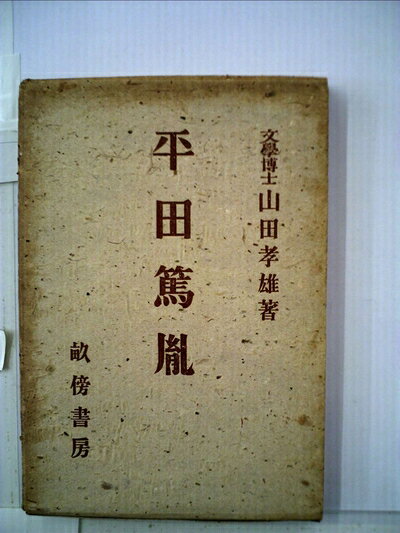 文學博士 山田孝雄著
平田篤胤
畝傍書房